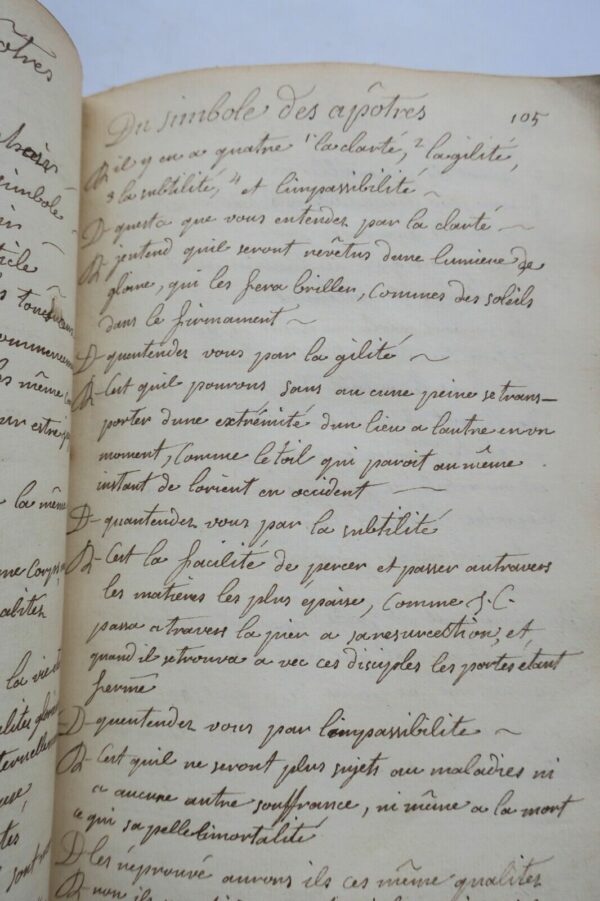 ôtres
simbole
ticle
les même
la même
me corps
la vie
Du simbole des apôtres 105
R il y en a quatre 1 la clarté, 2 la gilité,
3 la subtilité, 4 et limpassibilité ~
D questa que vous entendez par la clarté ~
R jentend quil seront revêtus dune lumiere de
gloire, qui les fera briller, Commes des soleils
dans le firmament ~
D quentendez vous par la gilité ~
R Cest quil pourons sans au cune peine se trans-
porter dune extrémité dun lieu a lautre en un
moment, Comme letoil qui paroit au même
instant de lorient en occident ~
D quantendez vous par la subtilité
R Cest la facilité de percer et passer autravers
les matières les plus épaise, Comme J.C.
passa a travers la pier a sa resurection, et
quand il se trouva a vec ces disciples les portes étant
fermê
D quentendez vous par limpassibilite ~
R Cest quil ne seront plus sujets au maladies ni
a aucune autre souffrance, ni même a la mort
ce qui sapelle limortalité
D les réprouvé aurons ils ces même qualites
R non ils